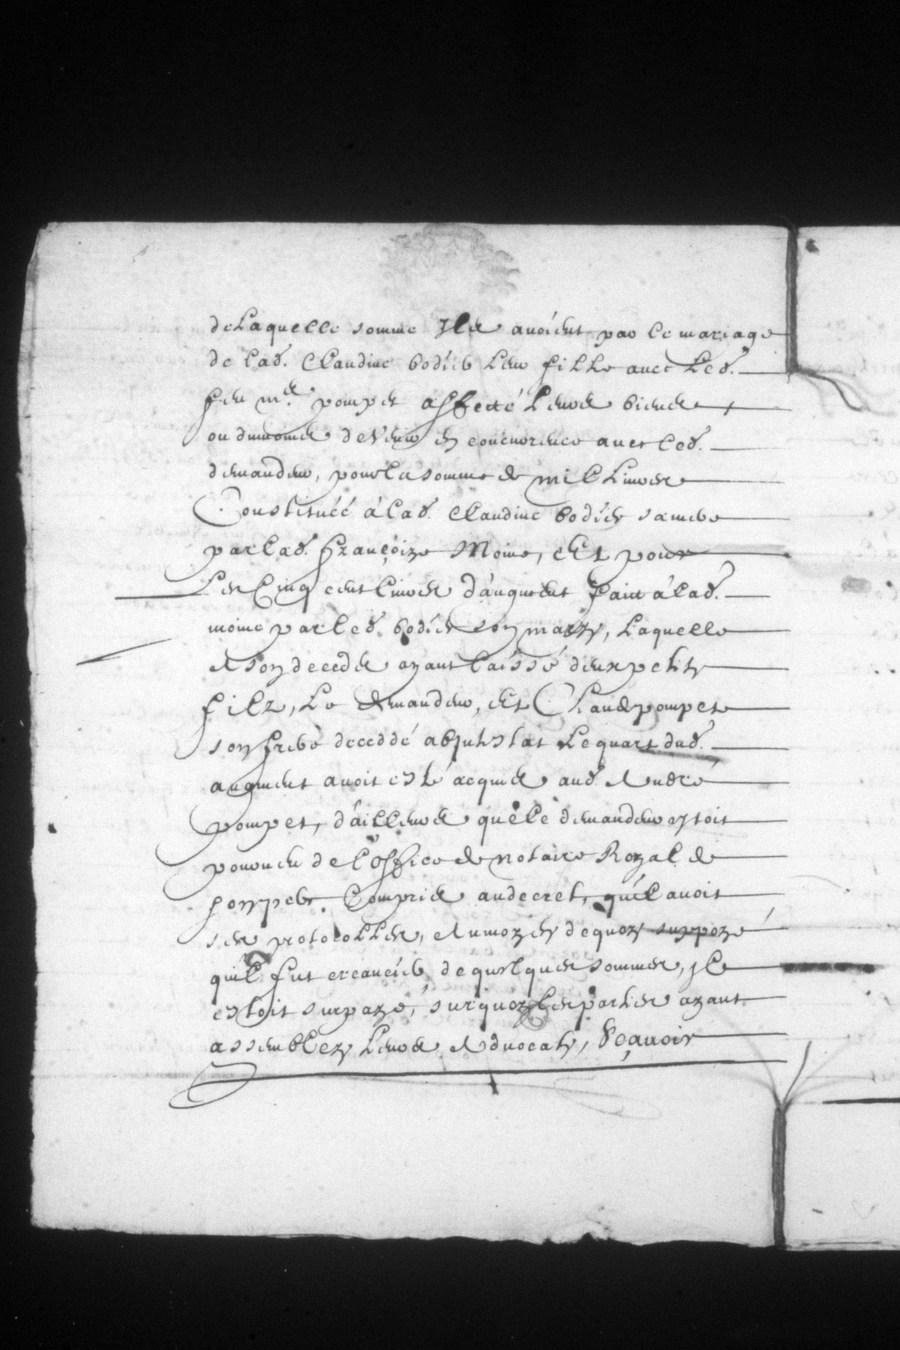 de Laquelle somme Ils avoient par le mariage
de lad. Claudine bodier Leur fille avec Led.
feu Mr. pompet affecté Leurs biens
ou du moins devenu en concurence avec led.
demandeur, pour la somme de mil Livres
Constituéé à lad. Claudine bodier sa mere
par lad. Françoize Moine, Et pour
Les Cinq cent livres d'augment faict à lad.
moine par led. bodier son mary, Laquelle
a son decedes ayant laissé deux petits
filz, Le demandeur, Et Claude pompet
son frere deceddé abjntestat Le quart dud.
augment avoit esté acquis aud. Andre
pompet, d'ailleurs que le demandeur estoit
pourveu de l'office de notaire Royal de
son pere Compris au decret, qu'il avoit
ses protocolles, Au moyen de quoy supposé
qu'il fut creancier de quelques sommes, jl
estoit surpayé, surquoy les parties ayant
assemblez Leurs Advocats, Sçavoir